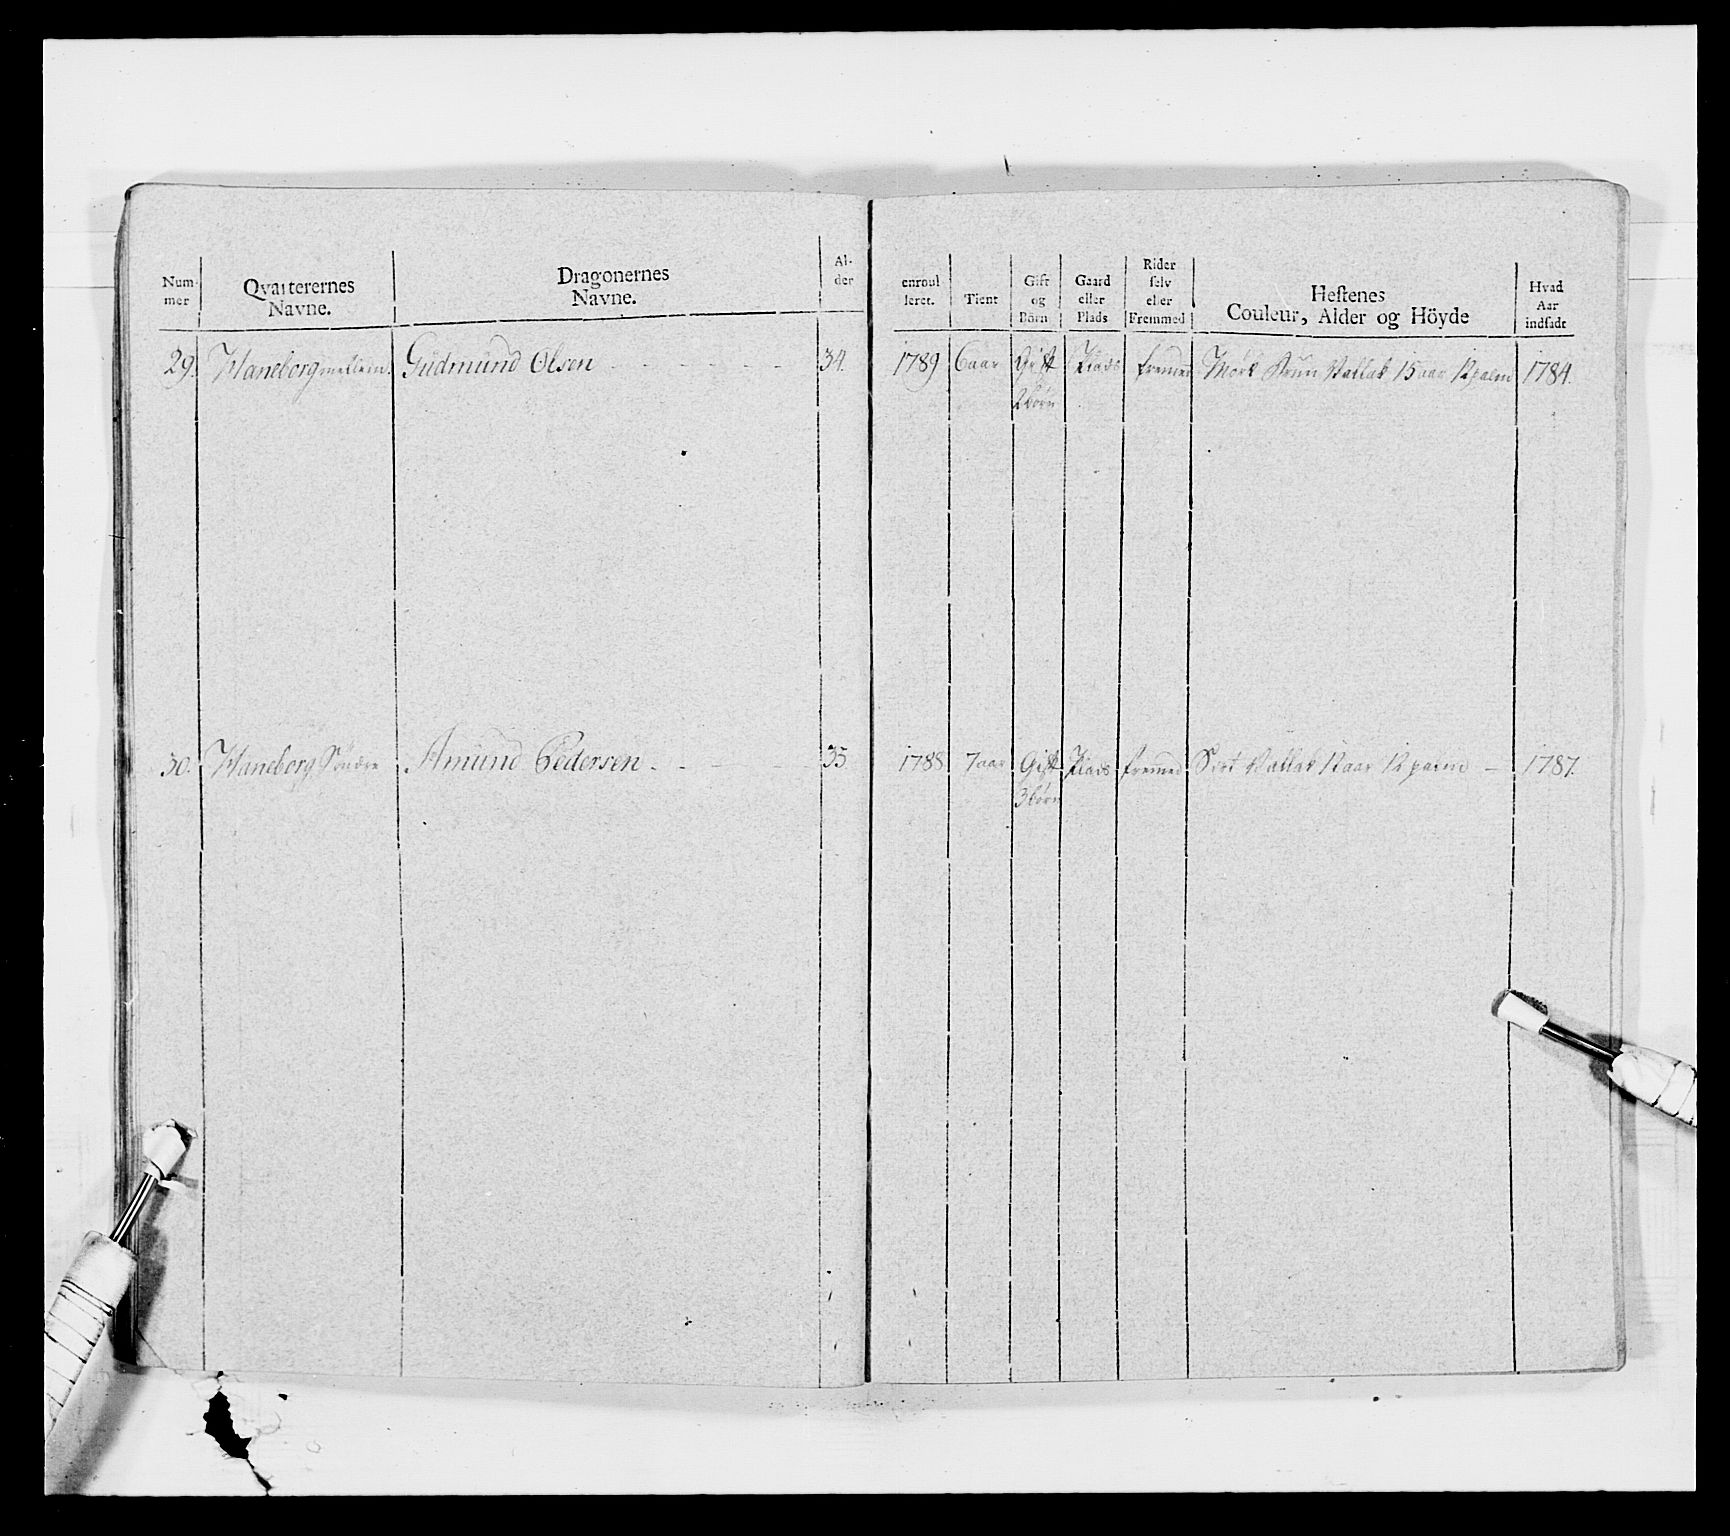 Num- mer | Qvarterernes Navne. | Dragonernes Navne. | Al- der | enroul leret. | Tient | Gift og Börn | Gaard eller Plads | Rider selv eller Fremmed | Hestenes Couleur, Alder og Höyde | Hvad Aar indsadt
29. Haneborg mellem. Gudmund Olsen 34. 1789 6 aar Gift Plads fremed Mörk Brun Vallak 15 aar 12 palm 1784.
2 börn
30. Haneborg Söndre Amund Pedersen 35 1788 7 aar Gift Plads fremed Sort Vallak 12 aar 12 palm 1787.
3 börn